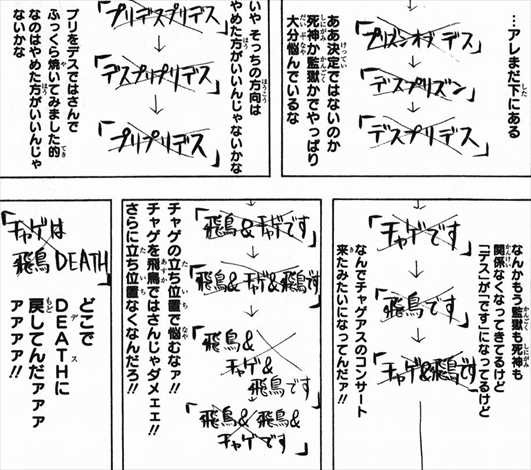 …アレまだ下にある
「プリズンオブデス」
↓
「デスプリズン」
↓
「デスプリデス」
ああ決定ではないのか
死神か監獄かでやっぱり
大分悩んでいるな
「プリデスプリデス」
↓
「デスプリプリデス」
↓
「プリプリデス」
いや そっちの方向は
やめた方がいいんじゃないかな
プリをデスではさんで
ふっくら焼いてみました的
なのはやめた方がいいんじゃ
ないかな
なんかもう監獄も死神も
関係なくなってきてるけど
「デス」が「です」になってるけど
なんでチャゲアスのコンサート
来たみたいになってんだァ!!
「チャゲです」
↓
「飛鳥です」
↓
「チャゲ&飛鳥です」
「飛鳥&チャゲです」
↓
「飛鳥&チャゲ&飛鳥です」
↓
「飛鳥&
チャゲ&
飛鳥です」
↓
「飛鳥&飛鳥&
チャゲです」
チャゲの立ち位置で悩むなァ!!
チャゲを飛鳥ではさんじゃダメェェ!!
さらに立ち位置なくなんだろ!!
「チャゲは
飛鳥DEATH」
どこで
DEATHに
戻してんだァァァ
アァァァ!!